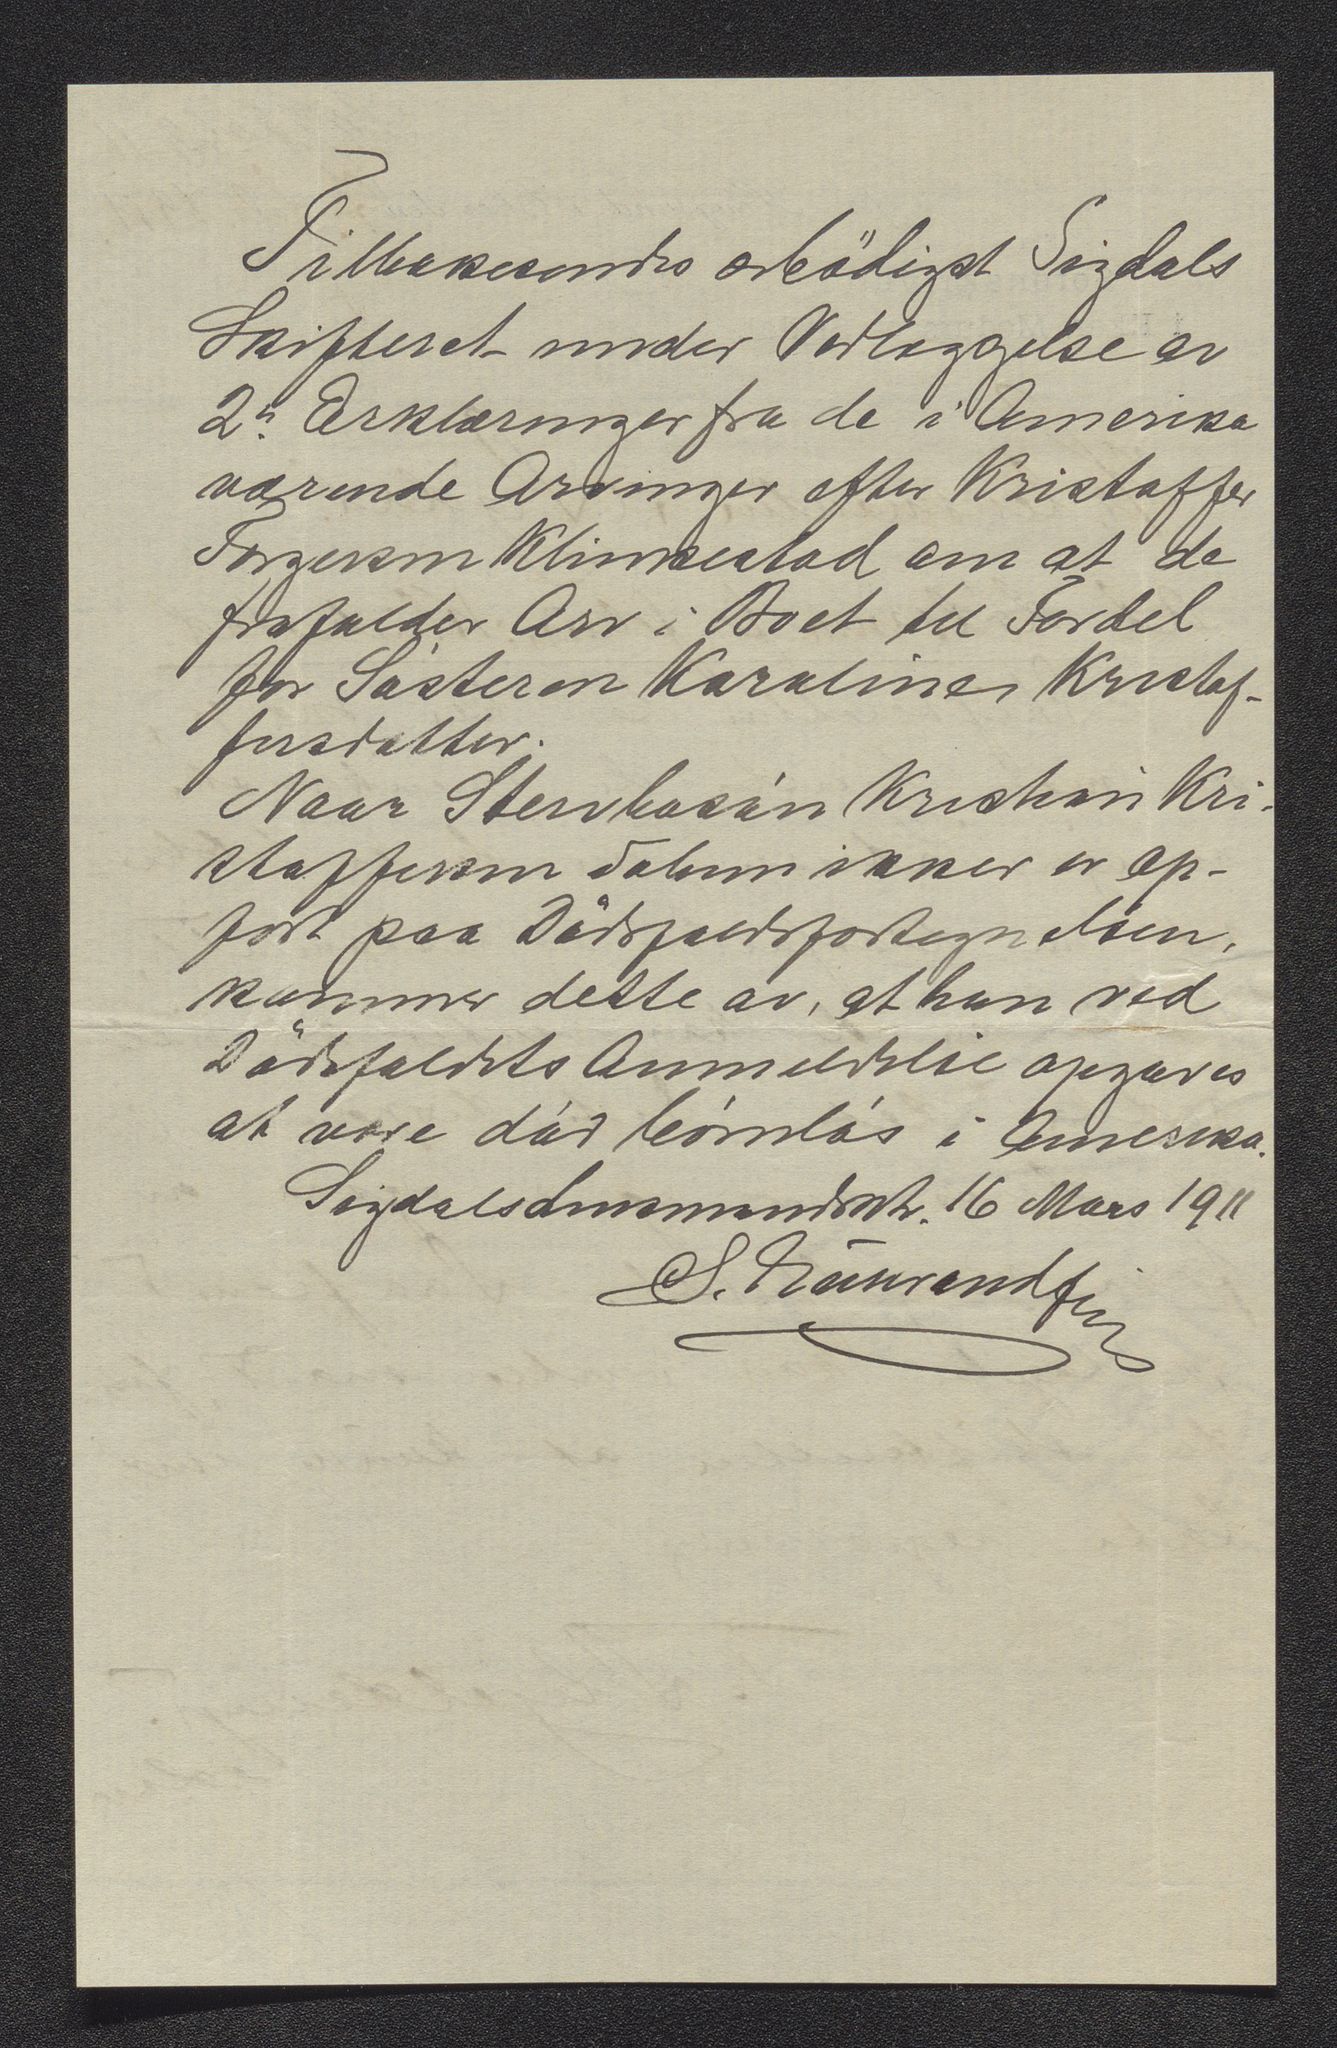 Tilbakesendes ærbødigst Sigdals
Skifteret under Vedlæggelse av
2de Erklæringer fra de i Amerika
værende Arvinger efter Kristoffer
Torgersen Klimsestad om at de
frafalder Arv i Boet til Fordel
for Søsteren Karoline Kristof-
fersdatter.
Naar Stervbosøn Kristian Kri-
stoffersen ikke er op-
ført paa Dødsfaldsfortegnelsen,
kommer dette av, at han ved
Dødsfaldets Anmeldelse opgaves
at være død börnlös i Amerika.
Sigdals Lensmandsktr. 16 Mars 1911
S.